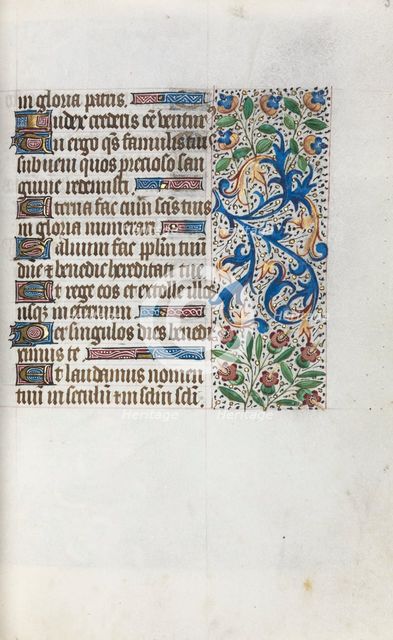 in gloria patris.
Iudex crederis ee ventur
Te ergo qs famulis tui
subueni quos precioso san
guine redemisti.
Eterna fac cum sctis tuis
in gloria munerari.
Saluum fac pplm tuū
dñe et benedic hereditati tue
Et rege eos et extolle illos
usqz in eternum
Per singulos dies benedi
cimus te
Et laudamus nomen
tuū in seculū et in sclm scli.
heritage
Heritage